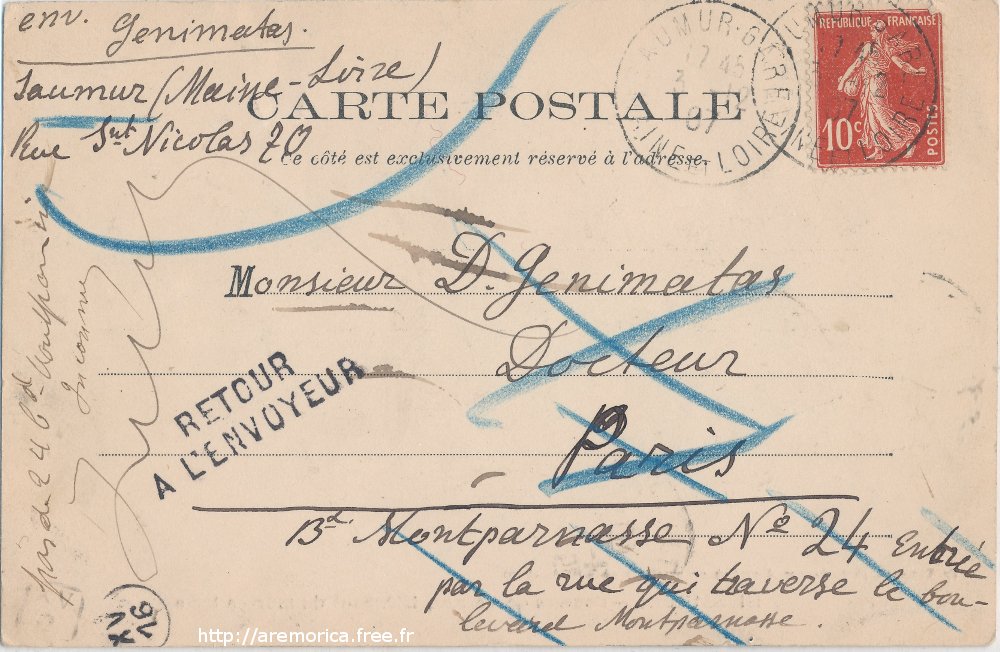 env. Genimatas.
Saumur (Maine-Loire)
Rue Snt Nicolas 70
CARTE POSTALE
Ce côté est exclusivement réservé à l'adresse.
SAUMUR-GARE
17 45
07
REPUBLIQUE FRANÇAISE
10c
POSTES
Monsieur D. Genimatas
Docteur
Paris
Bd. Montparnasse No 24 Entrée
par la rue qui traverse le bou-
levard Montparnasse.
RETOUR
A L'ENVOYEUR
Inconnu
XV
http://aremorica.free.fr